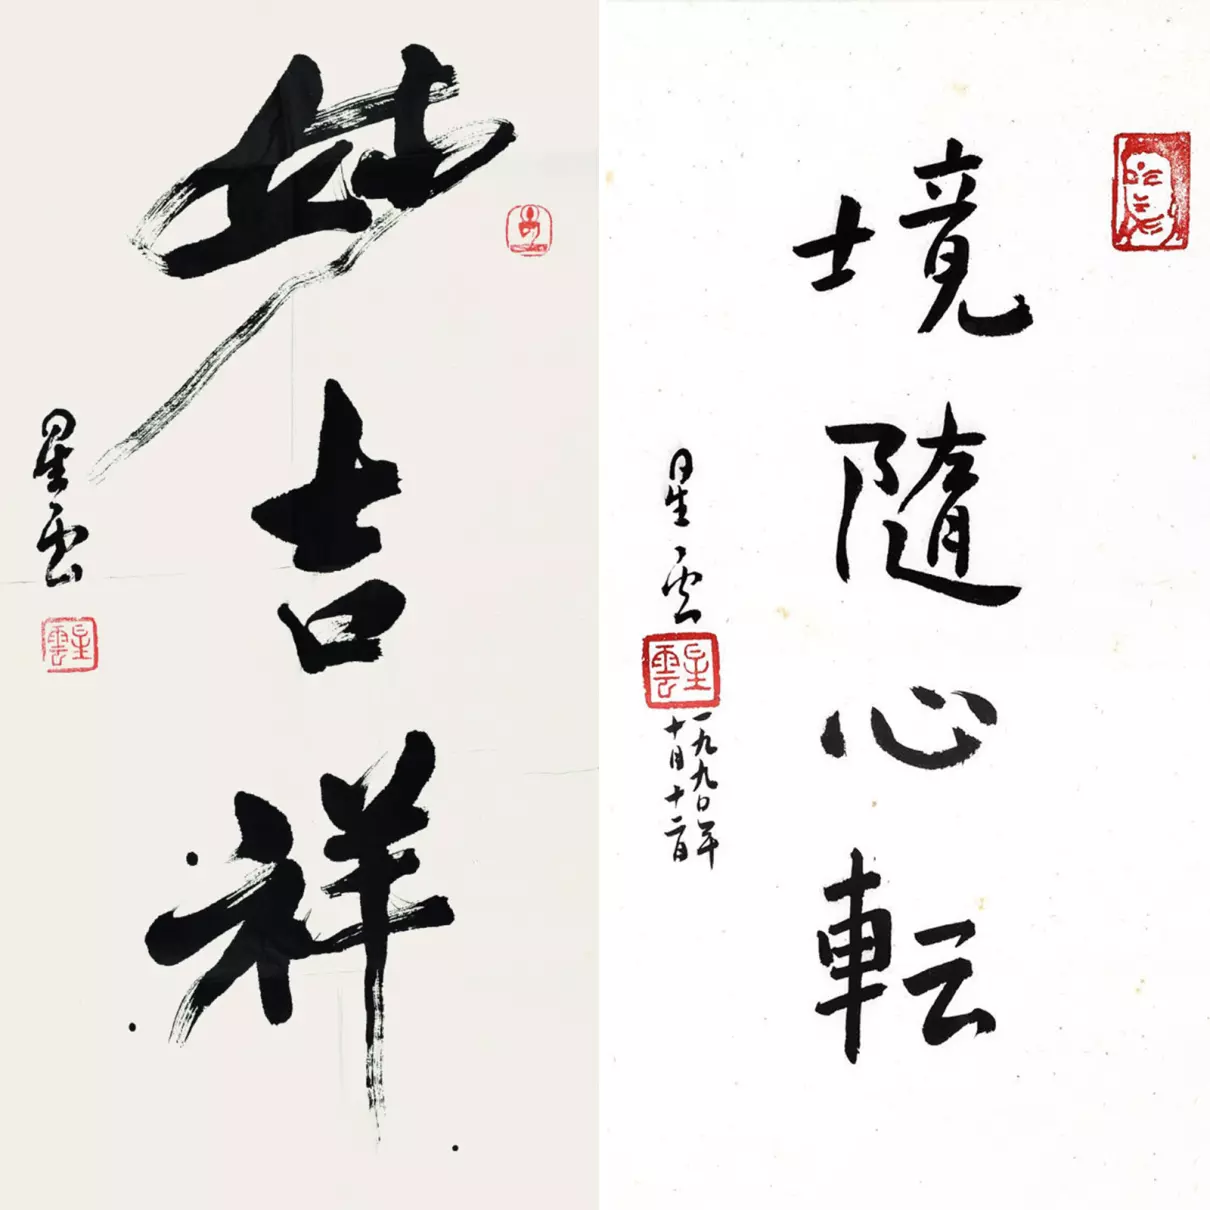 妙吉祥
星云
星雲
境隨心転
星云
星雲
一九九〇年
十月十二日